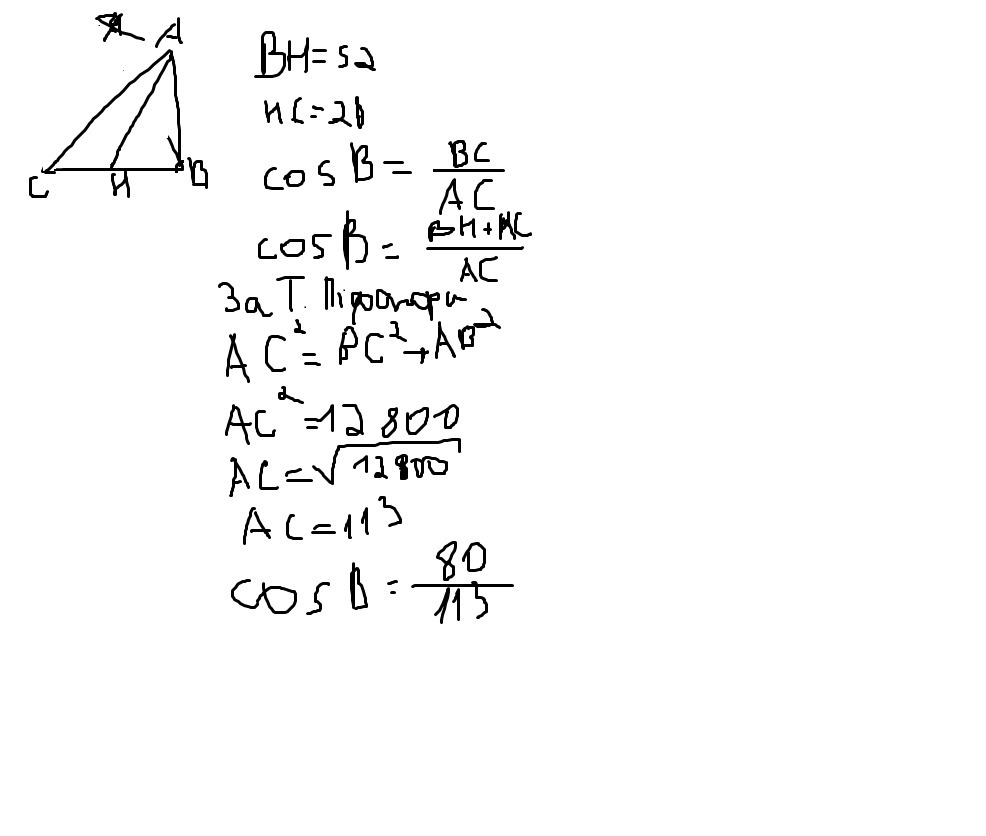 A
C H B
BH=52
HC=28
cos B = BC/AC
cos B = BH+HC/AC
За Т. Піфагора
AC²=BC²+AB²
AC²=12800
AC=√12800
AC=113
cos B = 80/113